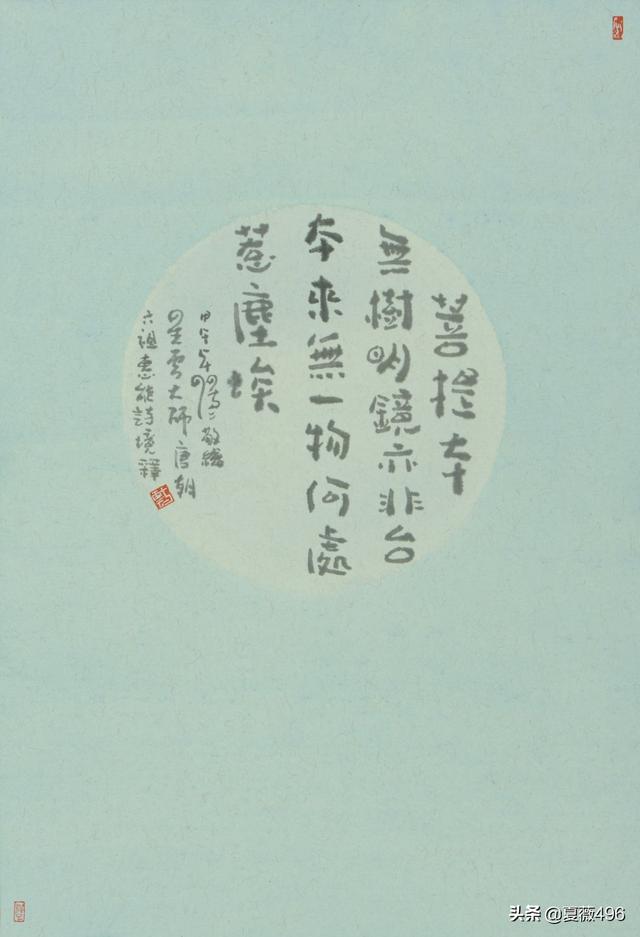 菩提本
無樹明鏡亦非台
本來無一物何處
惹塵埃
甲午年敬繪
星雲大師唐朝
六祖惠能詩境釋
头条 @夏薇496